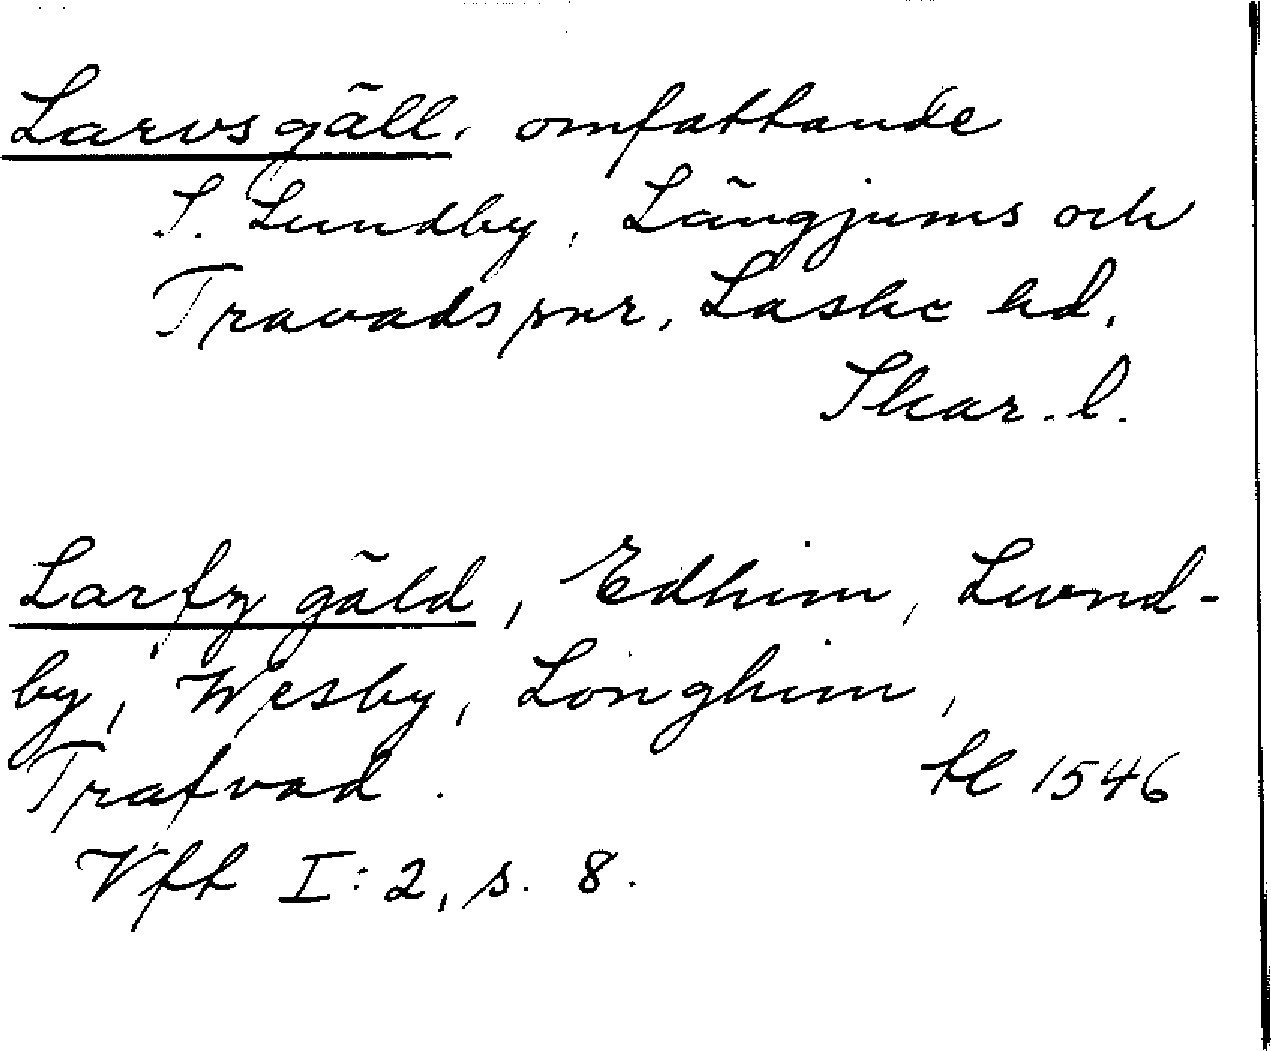 Larvs gäll, omfattande
S. Lundby, Längjums och
Travads snr, Laske hd,
Skar. l.
Larfz gäld, Edhim, Lwnd-
by, Wesby, Longhim,
Trafvad.
tl 1546
Vft I:2, s. 8.